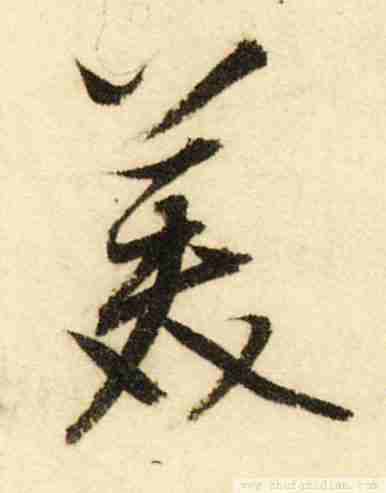 美
www.shufazidian.com